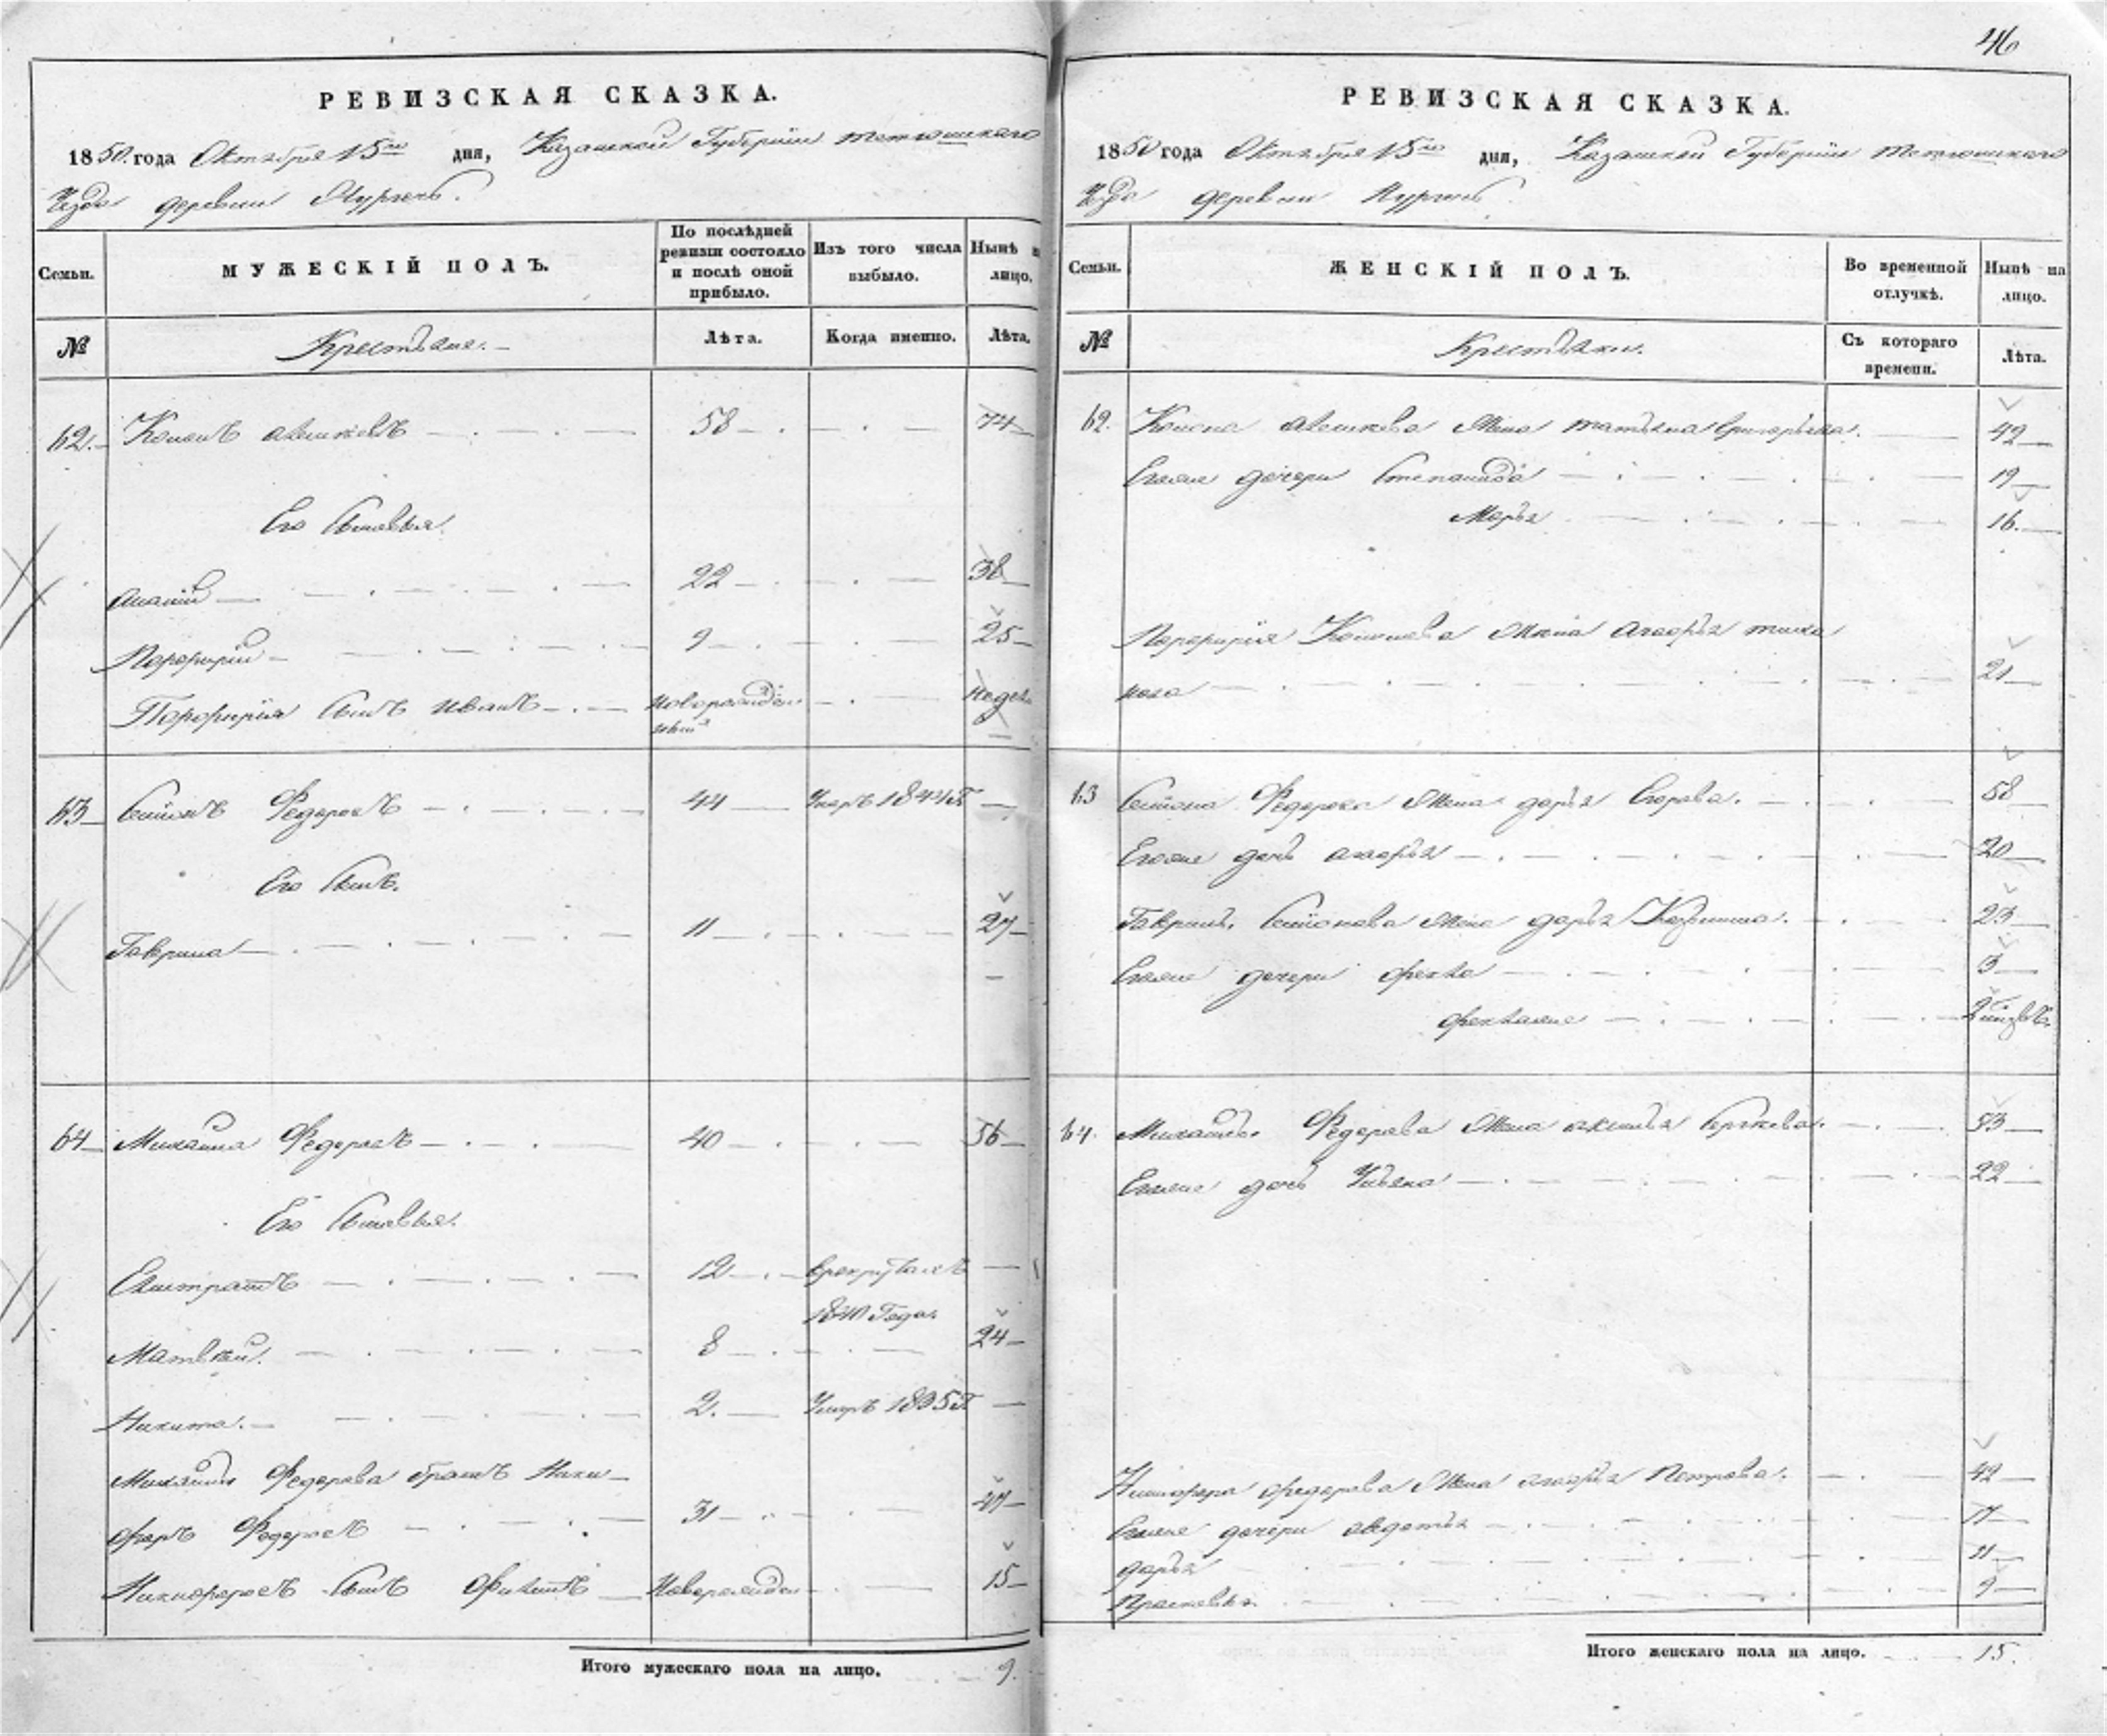 46
РЕВИЗСКАЯ СКАЗКА.
1850 года Октября 15го дня, Казанской Губернiи Тетюшскаго
Уезда деревни
Семьи. МУЖЕСКІЙ ПОЛЪ. По послѣдней ревизіи состояло и послѣ оной прибыло. Изъ того числа выбыло. Нынѣ на лицо.
№ Крестьяне. Лѣта. Когда именно. Лѣта.
62. Кононъ 58 74
Его Сыновья.
Ананiй 22 38
Порфирiй 9 25
Порфирiя Сынъ Иванъ новорожден ный недел
63 Семiонъ Федоровъ 44 Умеръ 1844 Г
Его Сынъ.
Гаврила 11 27
64 Михайла Федоровъ 40 56
Его Сыновья.
Евстратъ 12 врекруты
Матвей. 8 24
Никита. 2. Умеръ 1835 Г
Михайлы Федорова братъ Ники
форъ Федоровъ 31 47
Никифоровъ Сынъ Новорожден 15
Итого мужескаго пола на лицо. 9.
РЕВИЗСКАЯ СКАЗКА.
1850 года Октября 15го дня, Казанской Губернiи Тетюшскаго
Уезда деревни
Семьи. ЖЕНСКІЙ ПОЛЪ. Во временной отлучкѣ. Нынѣ на лицо.
№ Крестьянки. Съ котораго времени. Лѣта.
62. Конона жена татьяна Григорьева. 42
Егоже дочери Степанида 19
Марья 16.
Порфирiя Кононова жена
нова 21
63 Семiона Федорова жена дарья Егорова. 58
Егоже дочь 20
Гаврилы Семiонова жена дарья 23
Егоже дочери фекла 3
64. Михайлы Федорова жена аксинья 53
Егоже дочь Ульяна 22
Никифора федорова жена Петрова. 42
Егоже дочери авдотья 17
дарья 11
Прасковья 9
Итого женскаго пола на лицо. 15.